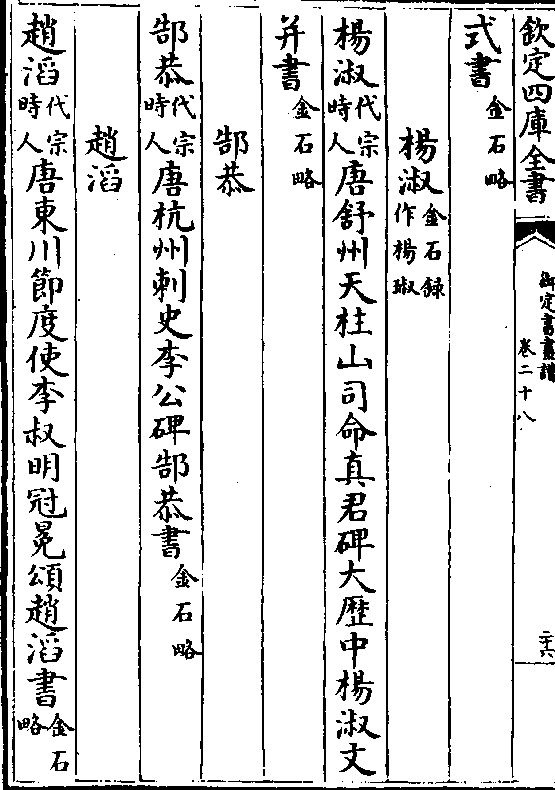 欽定四庫全書
御定書畫譜
卷二十八
二十六
式書金石略
楊淑金石錄作楊琡
楊淑代宗時人唐舒州天柱山司命真君碑大歷中楊淑文
并書金石略
郜恭
郜恭代宗時人唐杭州刺史李公碑郜恭書金石略
趙滔
趙滔代宗時人唐東川節度使李叔明冠冕頌趙滔書金石略